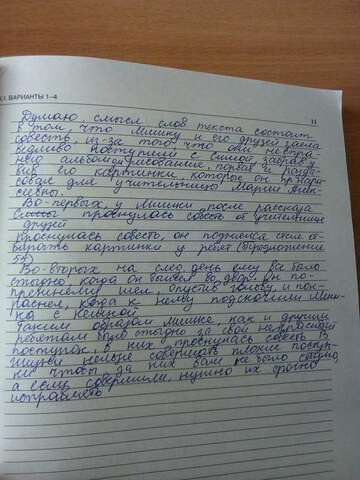 І. ВАРИАНТЫ 1–4
11
Думаю, смысл слов текста состоит
в том, что Мишку и его друзей заела
совесть, из-за того что они неспра
ведливо поступили с Симой, забрав у
него альбом для рисования, порвав и разде
лив его картинки, которые он
совал для учительницы Марии
евны.
Во-первых, у Мишки после рассказа
проснулась совесть от учительнице
друзей
проснулась совесть, он поднялся сам от
нимать картинки у ребят (Предложение
54)
Во-вторых на след. день ему было
стыдно, когда он вышел во двор он по-
прежнему шёл, опустив голову и пок-
раснел, когда к нему подскочили
ка с Кешкой.
Таким образом Мишке, как и другим
ребятам было стыдно за свой некрасивый
поступок и у них проснулась совесть. В
жизни нельзя совершать плохие поступ-
ки чтобы за них вам не было стыдно,
а если совершили, нужно их срочно
исправлять